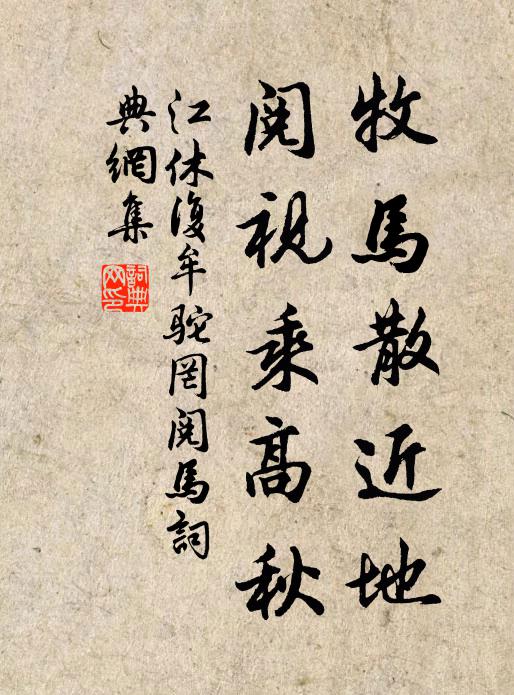 牧馬散近地
閱視乘高秋
江休復牟駝罔閱馬詞
典網集
詞典網印